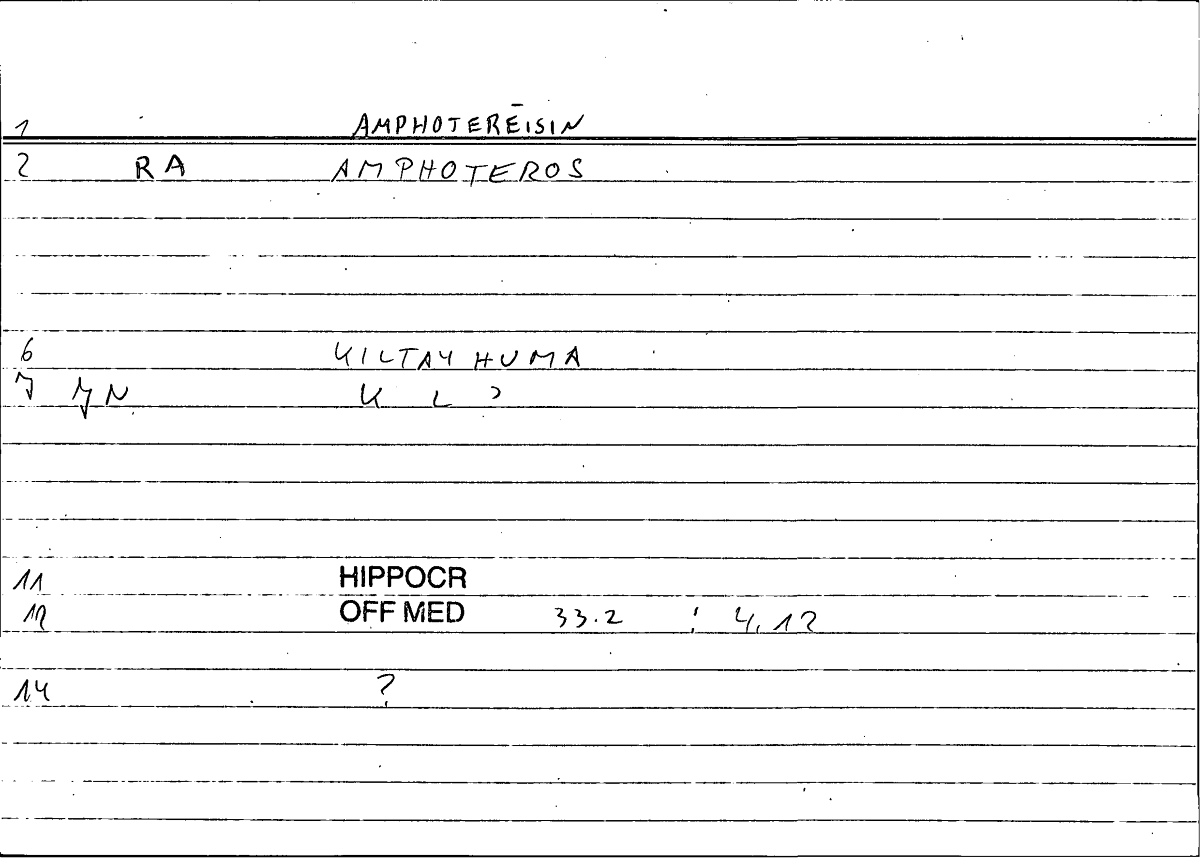 1 AMPHOTERĒISIN
2 RA AMPHOTEROS
6 KILTAYHUMA
7 JN K L ?
11 HIPPOCR
12 OFF MED 33.2 : 4,12
14 ?